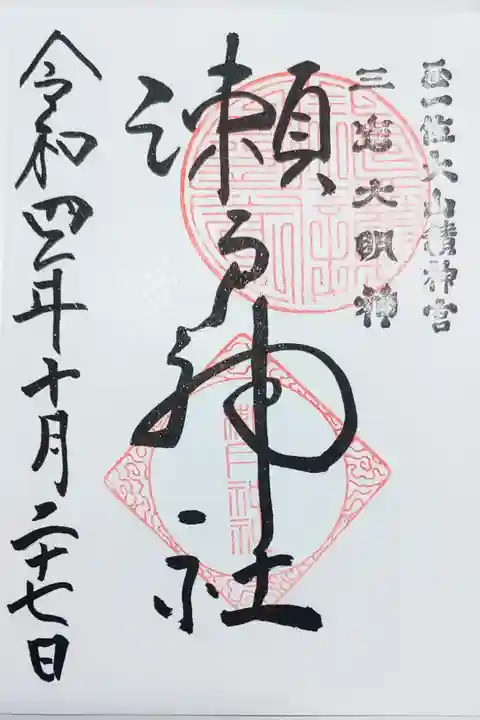 正一位大山積神宮
三嶋大明神
瀬戸神社
令和四年十月二十七日
瀬戸神社